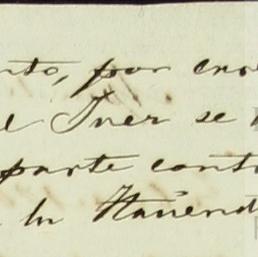 nto, por
el Juez se
parte cont
la Haciend